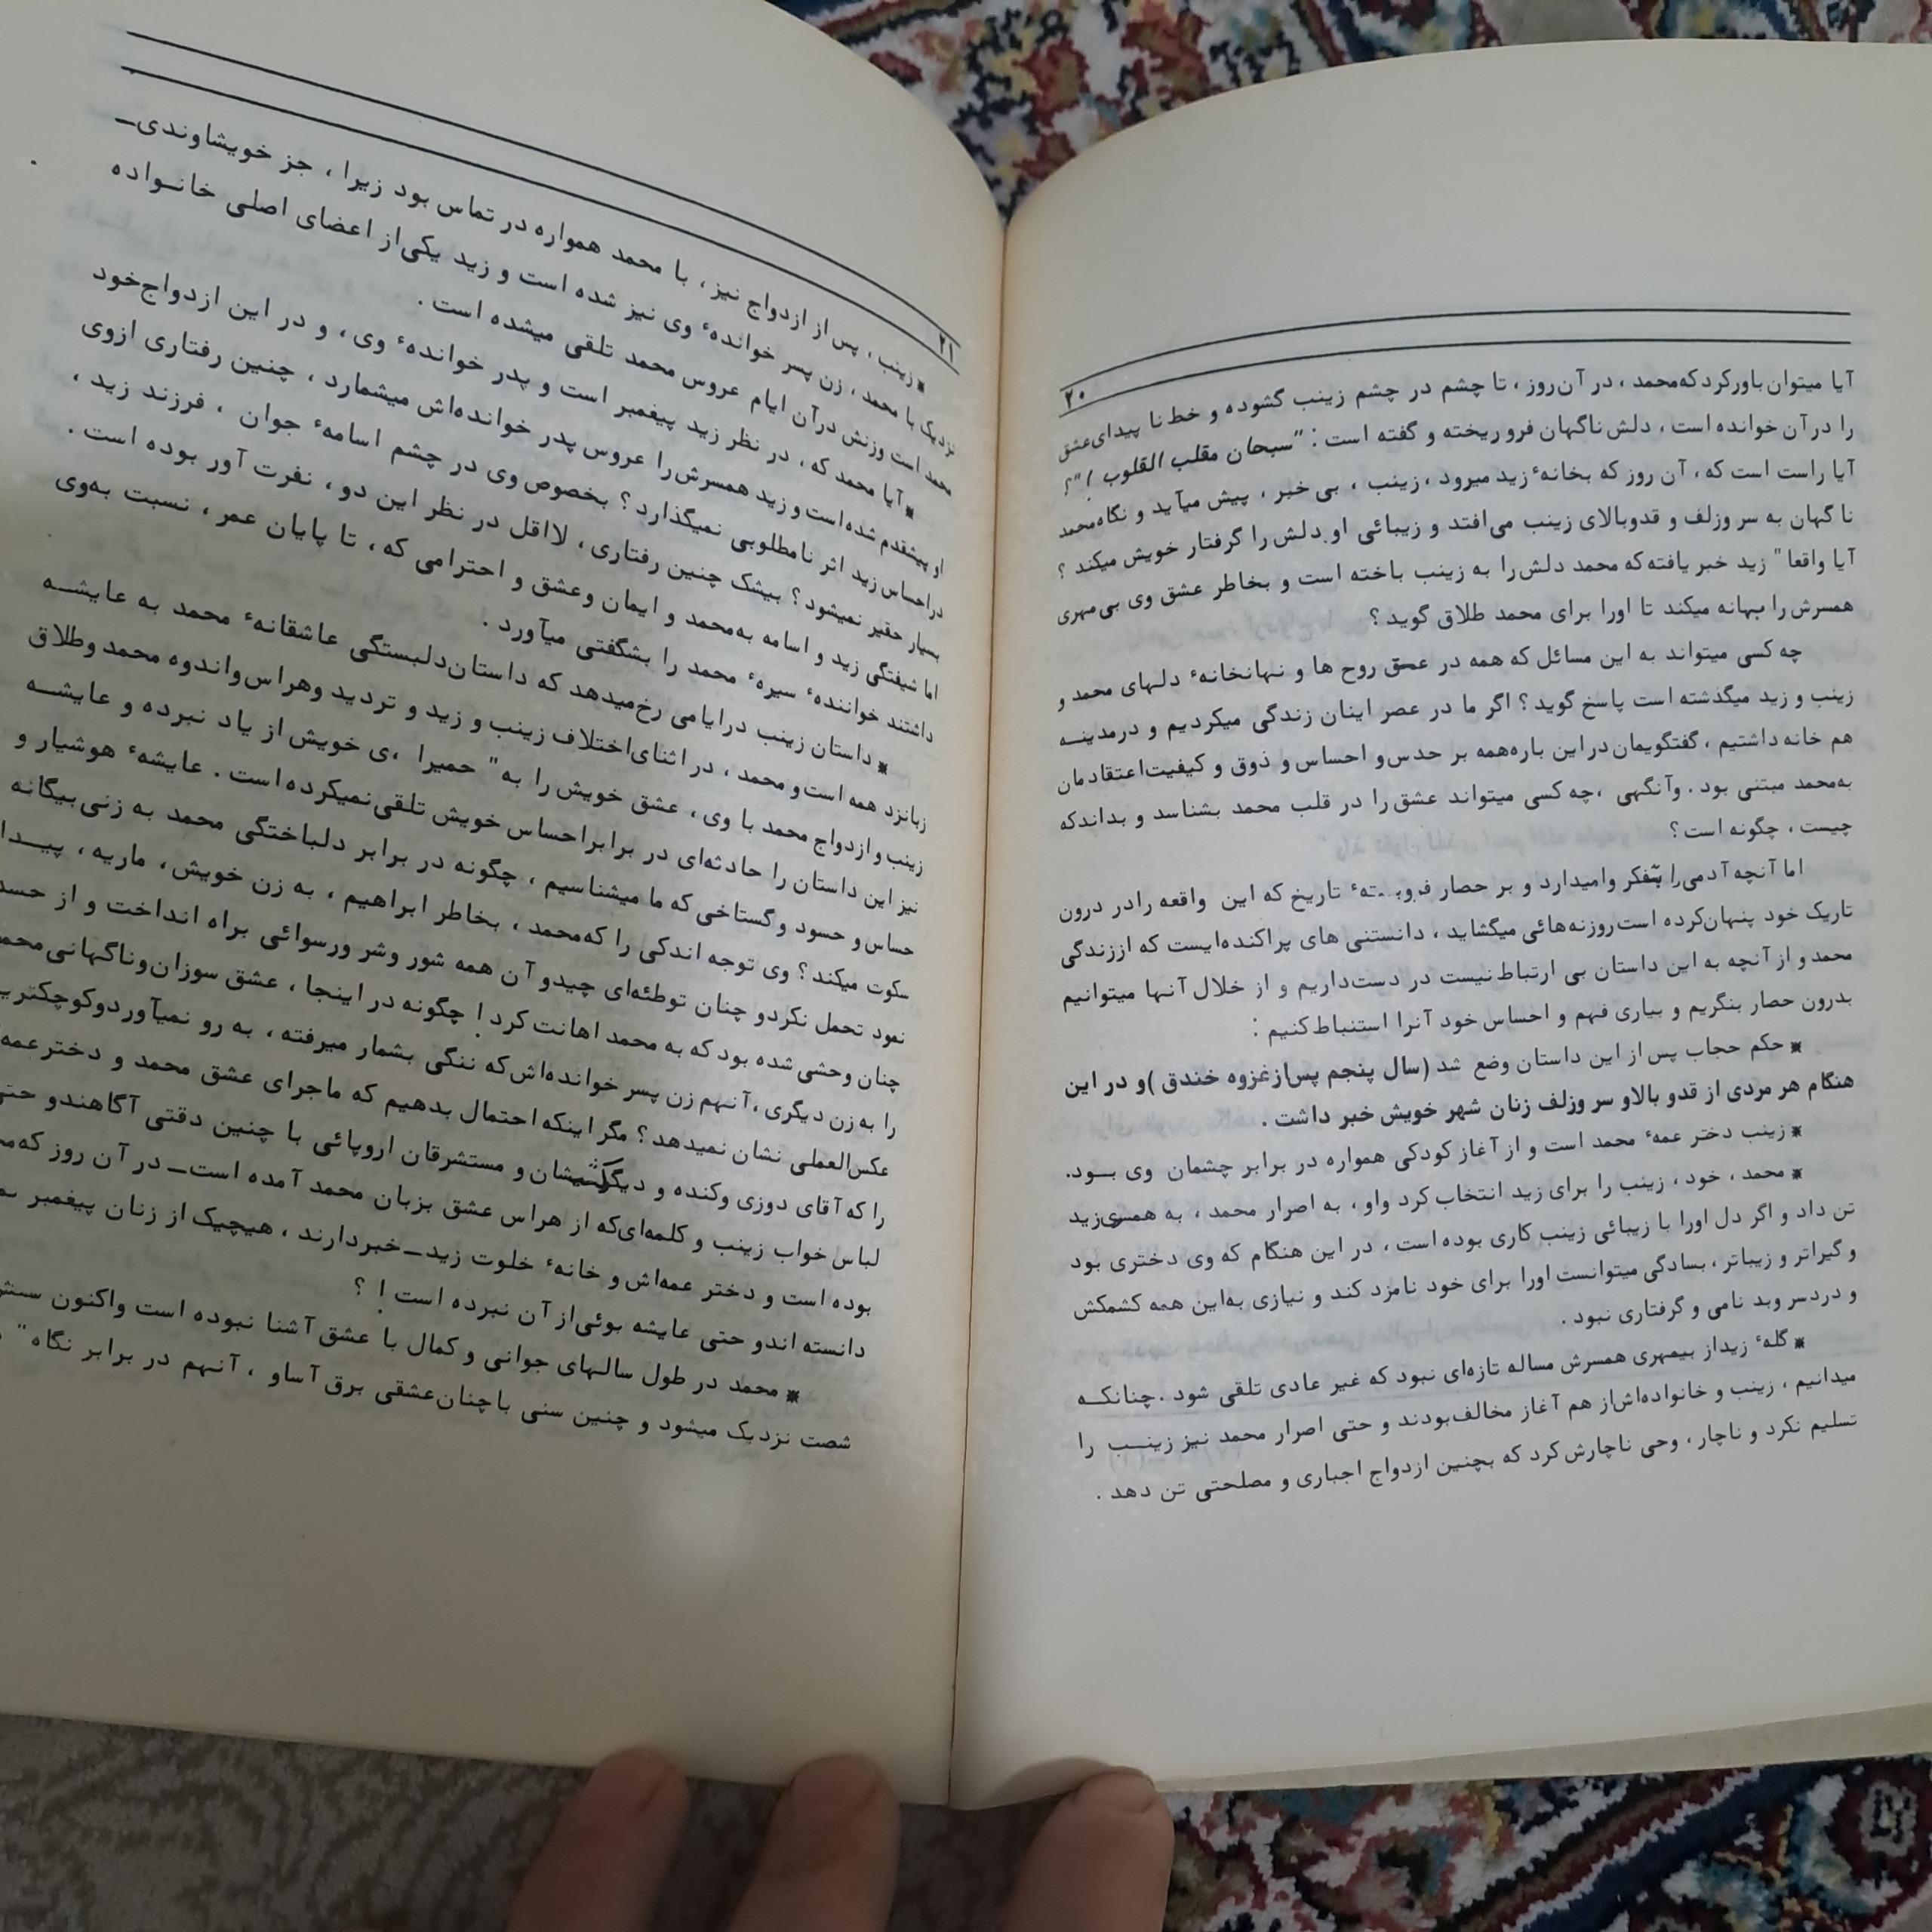 ۲۰
آیا میتوان باورکرد که‌محمد ، در آن‌روز ، تا چشم در چشم زینب گشوده و خط نا پیدای‌عشق
را در آن خوانده است ، دلش ناگهان فرو ریخته و گفته است : "سبحان مقلب القلوب !"؟
آیا راست است که ، آن روز که بخانهٔ زید میرود ، زینب ، بی خبر ، پیش میآید و نگاه‌محمد
نا گهان به سر وزلف و قدوبالای زینب می‌افتد و زیبائی او دلش را گرفتار خویش میکند ؟
آیا واقعا" زید خبر یافته‌که محمد دلش را به زینب باخته است و بخاطر عشق وی بی‌مهری
همسرش را بهانه میکند تا اورا برای محمد طلاق گوید ؟
چه کسی میتواند به این مسائل که همه در عمق روح ها و نهانخانهٔ دلهای محمد و
زینب و زید میگذشته است پاسخ گوید ؟ اگر ما در عصر اینان زندگی میکردیم و درمدینـه
هم خانه داشتیم ، گفتگویمان در این باره‌همه بر حدس‌و احساس و ذوق و کیفیت‌اعتقادمان
به‌محمد مبتنی بود . وآنگهی ، چه کسی میتواند عشق را در قلب محمد بشناسد و بداندکه
چیست ، چگونه است ؟
اما آنچه آدمی‌را بتفکر وامیدارد و بر حصار تاریخ که این واقعه رادر درون
تاریک خود پنهان‌کرده است‌روزنه‌هائی میگشاید ، دانستنی های پراکنده‌ایست که اززندگی
محمد و از آنچه به این داستان بی ارتباط‌نیست در دست‌داریم و از خلال آنها میتوانیم
بدرون حصار بنگریم و بیاری فهم و احساس خود آنرا استنباط کنیم :
* حکم حجاب پس از این داستان وضع شد (سال پنجم پس‌ازغزوه خندق )و در این
هنگام هر مردی از قدو بالاو سر وزلف زنان شهر خویش خبر داشت .
* زینب دختر عمهٔ محمد است و از آغاز کودکی همواره در برابر چشمان وی بـود.
* محمد ، خود ، زینب را برای زید انتخاب کرد واو ، به اصرار محمد ، به همسری‌زید
تن داد و اگر دل اورا با زیبائی زینب کاری بوده است ، در این هنگام که وی دختری بود
و گیراتر و زیباتر ، بسادگی میتوانست اورا برای خود نامزد کند و نیازی به‌این همه کشمکش
و دردسر وبد نامی و گرفتاری نبود .
* گلهٔ زیداز بیمهری همسرش مساله تازه‌ای نبود که غیر عادی تلقی شود . چنانکـه
میدانیم ، زینب و خانواده‌اش‌از هم آغاز مخالف‌بودند و حتی اصرار محمد نیز زینـب را
تسلیم نکرد و ناچار ، وحی ناچارش کرد که بچنین ازدواج اجباری و مصلحتی تن دهد .
۲۱
* زینب ، پس از ازدواج نیز ، با محمد همواره در تماس بود زیرا ، جز خویشاوندی‌ـ
نزدیک با محمد ، زن پسر خواندهٔ وی نیز شده است و زید یکی‌از اعضای اصلی خانـواده
محمد است وزنش درآن ایام عروس محمد تلقی میشده است .
* آیا محمد که ، در نظر زید پیغمبر است و پدر خواندهٔ وی ، و در این ازدواج‌خود
او پیشقدم شده‌است و زید همسرش‌را عروس پدر خوانده‌اش میشمارد ، چنین رفتاری ازوی
دراحساس زید اثر نامطلوبی نمیگذارد ؟ بخصوص وی در چشم اسامهٔ جوان ، فرزند زید ،
بسیار حقیر نمیشود ؟ بیشک چنین رفتاری ، لااقل در نظر این دو ، نفرت آور بوده است .
اما شیفتگی زید و اسامه به‌محمد و ایمان وعشق و احترامی که ، تا پایان عمر ، نسبت به‌وی
داشتند خوانندهٔ سیرهٔ محمد را بشگفتی میآورد .
* داستان زینب درایامی رخ‌میدهد که داستان‌دلبستگی عاشقانهٔ محمد به عایشـه
زبانزد همه است‌و محمد ، در اثنای‌اختلاف زینب و زید و تردید وهراس‌واندوه محمد وطلاق
زینب و ازدواج محمد با وی ، عشق خویش را به " حمیرا ،ی خویش از یاد نبرده و عایشـه
نیز این داستان را حادثه‌ای در برابراحساس خویش تلقی‌نمیکرده‌است . عایشهٔ هوشیار و
حساس و حسود و گستاخی که ما میشناسیم ، چگونه در برابر دلباختگی محمد به زنی‌بیگانه
سکوت میکند ؟ وی توجه اندکی را که‌محمد ، بخاطر ابراهیم ، به زن خویش، ماریه ،
نمود تحمل نکردو چنان توطئه‌ای چیدو آن همه شور وشر ورسوائی براه انداخت و از
چنان وحشی شده بود که به محمد اهانت کرد ! چگونه در اینجا ، عشق سوزان‌وناگهانی
را به زن دیگری ، آنهم زن پسر خوانده‌اش‌که ننگی بشمار میرفته ، به رو نمیآوردو
عکس‌العملی نشان نمیدهد ؟ مگر اینکه احتمال بدهیم که ماجرای عشق محمد و دختر
را که آقای دوزی وکنده و دیگر کشیشان و مستشرقان اروپائی با چنین دقتی آگاهندو
لباس خواب زینب و کلمه‌ای‌که از هراس عشق بزبان محمد آمده است‌ـ در آن روز
بوده است و دختر عمه‌اش و خانهٔ خلوت زید‌ـ‌خبردارند ، هیچیک از زنان پیغمبر
دانسته اندو حتی عایشه بوئی‌از آن نبرده است ! ؟
* محمد در طول سالهای جوانی و کمال با عشق آشنا نبوده است واکنون
شصت نزدیک میشود و چنین سنی باچنان‌عشقی برق آساو ، آنهم در برابر نگاه "